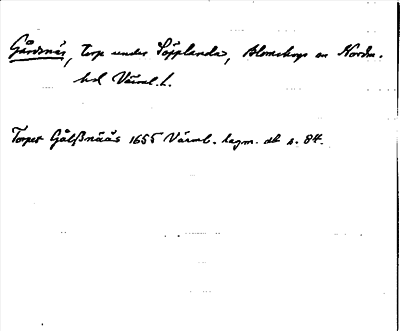 Gårdsnäs, Torp under Töpplanda, Blomskogs sn Nordm.
hd Värml. l.
Torpet Gålßnääs 1655 Värml. lagm. db s. 84.